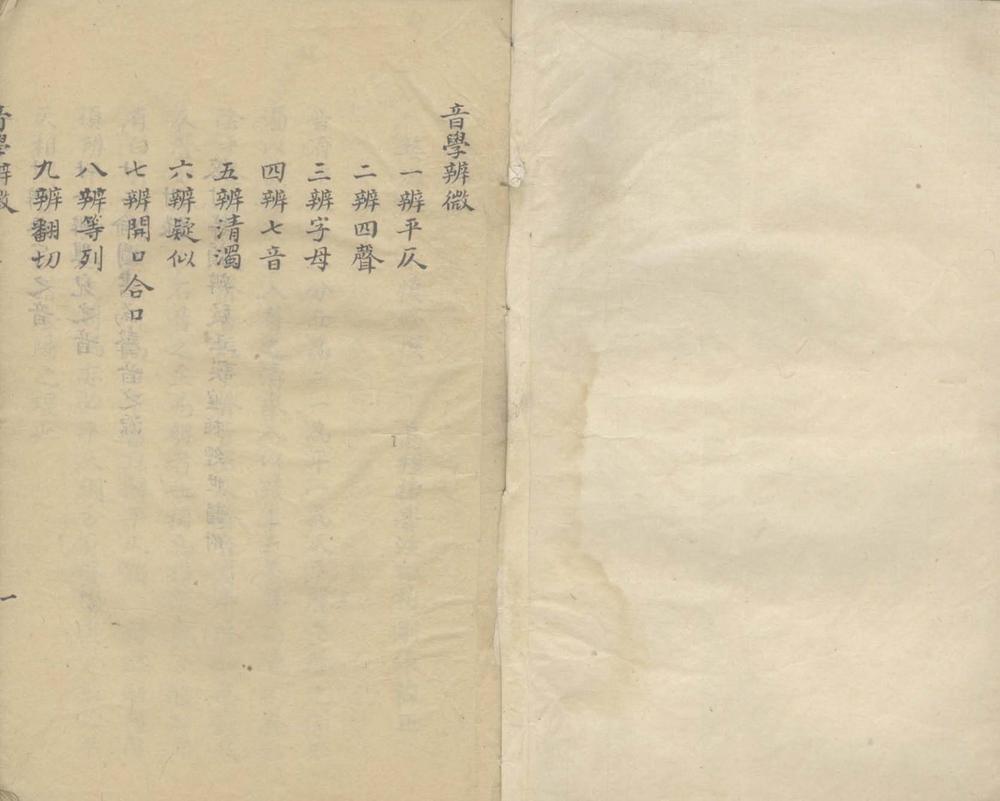 音學辨微
一辨平仄
二辨四聲
三辨字母
四辨七音
五辨清濁
六辨疑似
七辨開口合口
八辨等列
九辨翻切
音學辨微 一